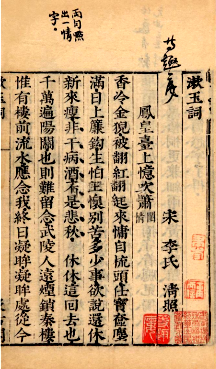 兩句點
出一情
字。
漱玉詞
宋 李氏 清照
鳳皇臺上憶吹簫 閨情
香冷金猊被翻紅 起來慵自梳頭任寶奩塵
滿日上簾鉤生怕 別苦多少事欲說還休
新來瘦非干病酒不是悲秋 休休這回去也
千萬遍陽關也則難留念武陵人遠煙鎖秦樓
惟有樓前流水應念我終日凝眸凝眸處從今